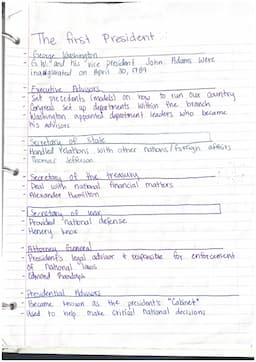 The first President
George Washington
G.W. and his vice president John Adams were
inaugurated on April 30, 1789
Executive Advisors
Set precedents (models) on how to run our country
Congress set up departments within the branch
Washington appointed department leaders who became
his advisors
Secretary of State
Handled relations with other nations/foreign affairs
Thomas Jefferson
Secretary of the treasury
Deal with national financial matters
Alexander Hamilton
Secretary of war
Provided national defense
Henery Knox
Attorney General
President's legal advisor & responsible for enforcement
of national laws
Edmund Randolph
Presidential Advisors
Became known as the president's "Cabinet"
Used to help make critical national decisions